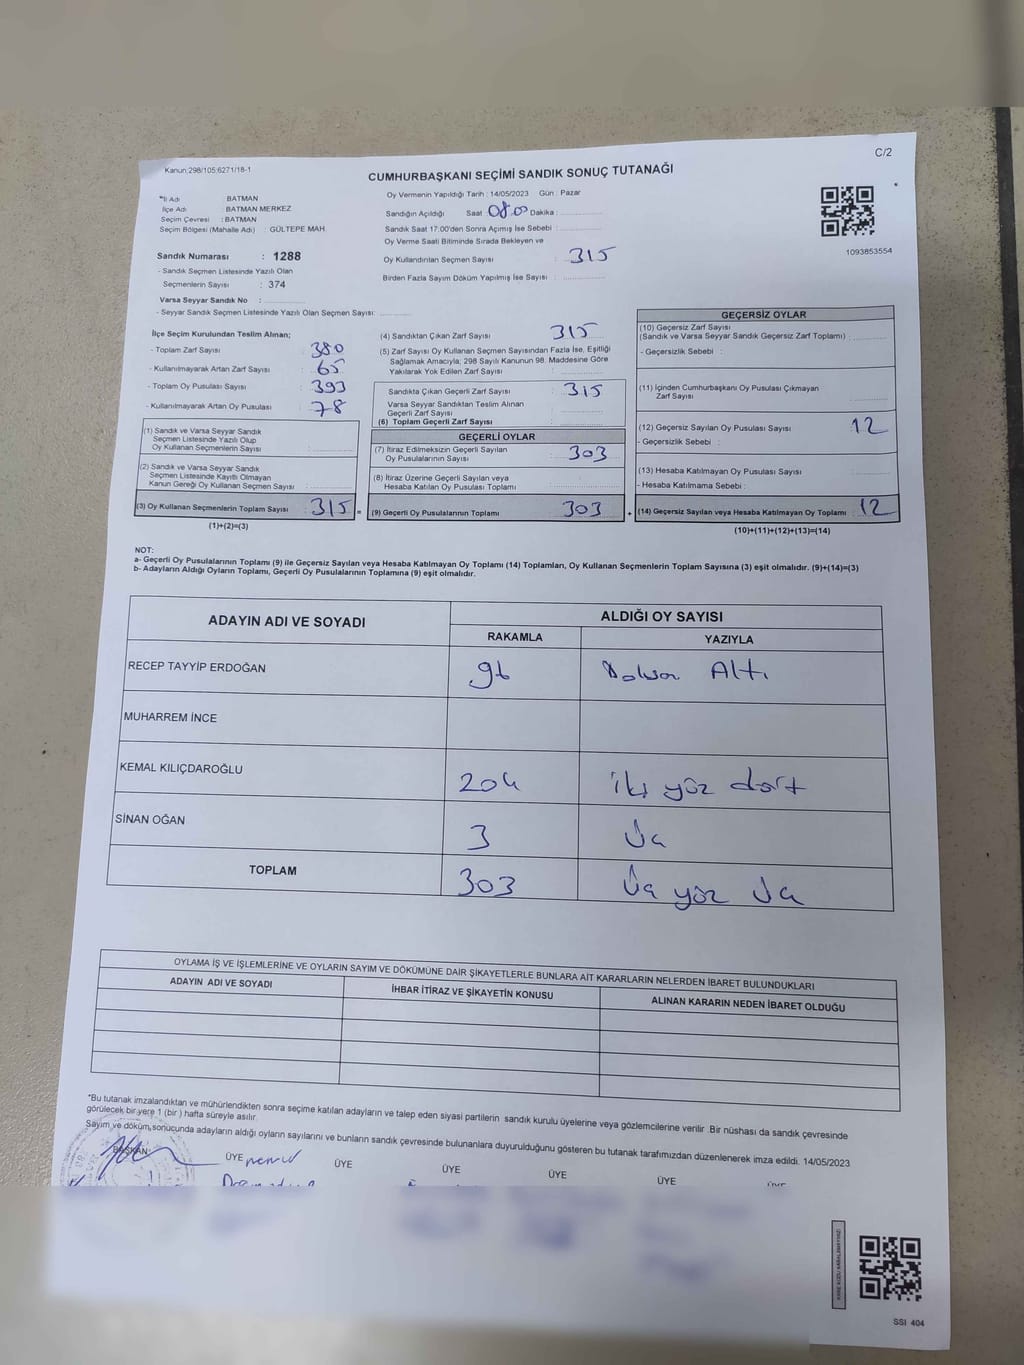 Kanun:298/105;6271/18-1
C/2
CUMHURBAŞKANI SEÇİMİ SANDIK SONUÇ TUTANAĞI
*İl Adı BATMAN
İlçe Adı BATMAN MERKEZ
Seçim Çevresi : BATMAN
Seçim Bölgesi (Mahalle Adı) : GÜLTEPE MAH.
Sandık Numarası : 1288
- Sandık Seçmen Listesinde Yazılı Olan
Seçmenlerin Sayısı : 374
Varsa Seyyar Sandık No :
- Seyyar Sandık Seçmen Listesinde Yazılı Olan Seçmen Sayısı:
Oy Vermenin Yapıldığı Tarih : 14/05/2023 Gün : Pazar
Sandığın Açıldığı Saat 08.00 Dakika :
Sandık Saat 17:00'den Sonra Açımış İse Sebebi :
Oy Verme Saati Bitiminde Sırada Bekleyen ve
Oy Kullandırılan Seçmen Sayısı : 315
Birden Fazla Sayım Döküm Yapılmış İse Sayısı :
1093853554
İlçe Seçim Kurulundan Teslim Alınan;
- Toplam Zarf Sayısı : 380
- Kullanılmayarak Artan Zarf Sayısı : 65
- Toplam Oy Pusulası Sayısı : 393
- Kullanılmayarak Artan Oy Pusulası : 78
(1) Sandık ve Varsa Seyyar Sandık
Seçmen Listesinde Yazılı Olup
Oy Kullanan Seçmenlerin Sayısı :
(2) Sandık ve Varsa Seyyar Sandık
Seçmen Listesinde Kayıtlı Olmayan
Kanun Gereği Oy Kullanan Seçmen Sayısı :
(3) Oy Kullanan Seçmenlerin Toplam Sayısı : 315 =
(1)+(2)=(3)
(4) Sandıktan Çıkan Zarf Sayısı : 315
(5) Zarf Sayısı Oy Kullanan Seçmen Sayısından Fazla İse, Eşitliği
Sağlamak Amacıyla; 298 Sayılı Kanunun 98. Maddesine Göre
Yakılarak Yok Edilen Zarf Sayısı :
Sandıkta Çıkan Geçerli Zarf Sayısı : 315
Varsa Seyyar Sandıktan Teslim Alınan
Geçerli Zarf Sayısı :
(6) Toplam Geçerli Zarf Sayısı :
GEÇERLİ OYLAR
(7) İtiraz Edilmeksizin Geçerli Sayılan
Oy Pusulalarının Sayısı : 303
(8) İtiraz Üzerine Geçerli Sayılan veya
Hesaba Katılan Oy Pusulası Toplamı :
(9) Geçerli Oy Pusulalarının Toplamı : 303 +
GEÇERSİZ OYLAR
(10) Geçersiz Zarf Sayısı
(Sandık ve Varsa Seyyar Sandık Geçersiz Zarf Toplamı) :
- Geçersizlik Sebebi :
(11) İçinden Cumhurbaşkanı Oy Pusulası Çıkmayan
Zarf Sayısı :
(12) Geçersiz Sayılan Oy Pusulası Sayısı : 12
- Geçersizlik Sebebi :
(13) Hesaba Katılmayan Oy Pusulası Sayısı :
- Hesaba Katılmama Sebebi :
(14) Geçersiz Sayılan veya Hesaba Katılmayan Oy Toplamı : 12
(10)+(11)+(12)+(13)=(14)
NOT:
a- Geçerli Oy Pusulalarının Toplamı (9) ile Geçersiz Sayılan veya Hesaba Katılmayan Oy Toplamı (14) Toplamları, Oy Kullanan Seçmenlerin Toplam Sayısına (3) eşit olmalıdır. (9)+(14)=(3)
b- Adayların Aldığı Oyların Toplamı, Geçerli Oy Pusulalarının Toplamına (9) eşit olmalıdır.
ADAYIN ADI VE SOYADI ALDIĞI OY SAYISI
RAKAMLA YAZIYLA
RECEP TAYYİP ERDOĞAN 96 Doksan Altı
MUHARREM İNCE
KEMAL KILIÇDAROĞLU 204 iki yüz dört
SİNAN OĞAN 3 Üç
TOPLAM 303 Üç yüz Üç
OYLAMA İŞ VE İŞLEMLERİNE VE OYLARIN SAYIM VE DÖKÜMÜNE DAİR ŞİKAYETLERLE BUNLARA AİT KARARLARIN NELERDEN İBARET BULUNDUKLARI
ADAYIN ADI VE SOYADI İHBAR İTİRAZ VE ŞİKAYETİN KONUSU ALINAN KARARIN NEDEN İBARET OLDUĞU
*Bu tutanak imzalandıktan ve mühürlendikten sonra seçime katılan adayların ve talep eden siyasi partilerin sandık kurulu üyelerine veya gözlemcilerine verilir. Bir nüshası da sandık çevresinde
görülecek bir yere 1 (bir) hafta süreyle asılır.
Sayım ve döküm sonucunda adayların aldığı oyların sayılarını ve bunların sandık çevresinde bulunanlara duyurulduğunu gösteren bu tutanak tarafımızdan düzenlenerek imza edildi. 14/05/2023
BAŞKAN ÜYE ÜYE ÜYE ÜYE ÜYE
SSI 404